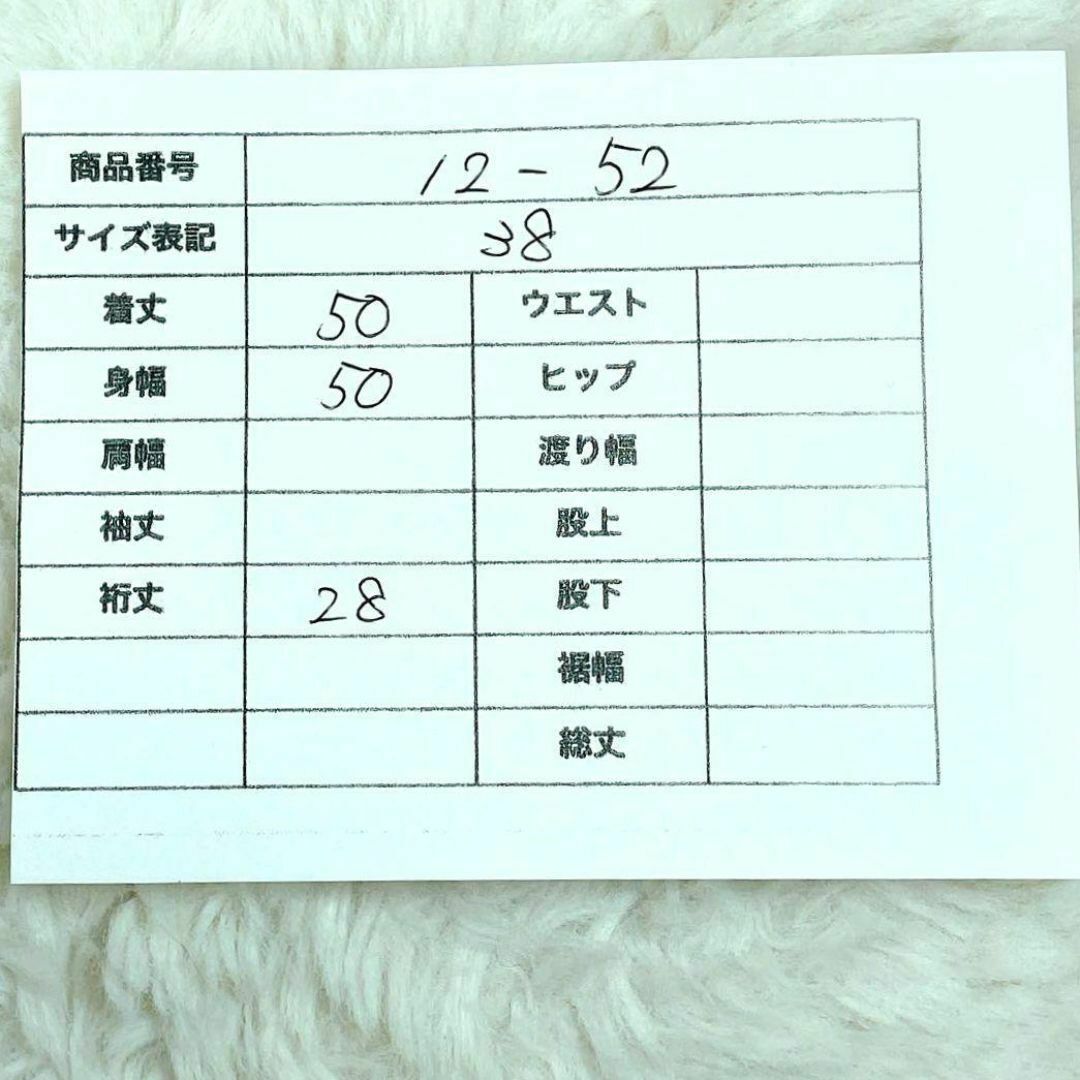 商品番号 12 - 52
サイズ表記 38
着丈 50 ウエスト
身幅 50 ヒップ
肩幅 渡り幅
袖丈 股上
裄丈 28 股下
裾幅
総丈